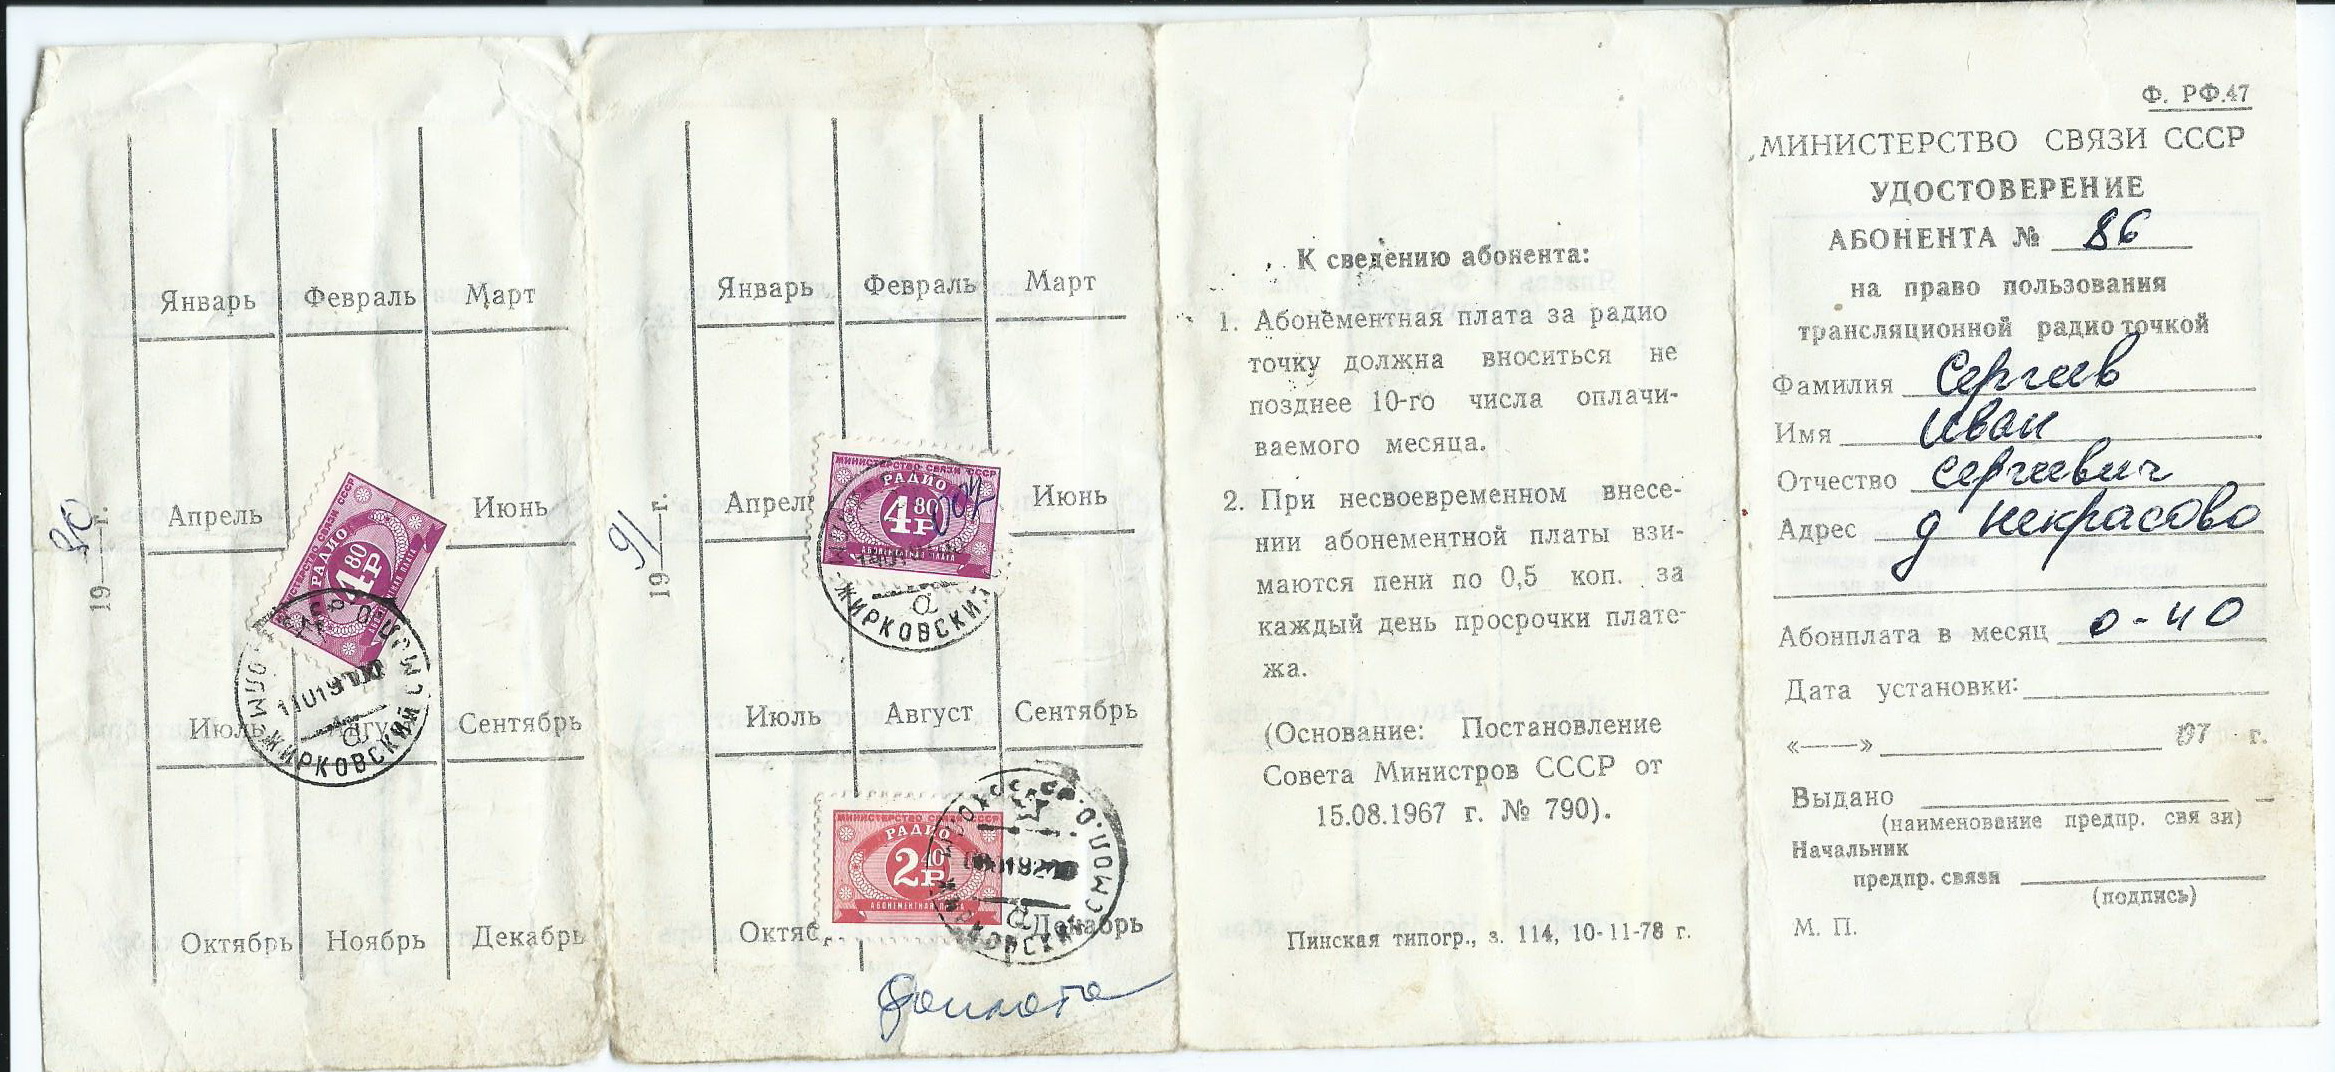 Январь Февраль Март
Апрель Июнь
1990 г.
МИНИСТЕРСТВО СВЯЗИ СССР
РАДИО
4 80 Р
Июль Сентябрь
ЖИРКОВСКИЙ
Октябрь Ноябрь Декабрь
Январь Февраль Март
Апрель Июнь
1991 г.
МИНИСТЕРСТВО СВЯЗИ СССР
РАДИО
4 80 Р
АБОНЕМЕНТНАЯ ПЛАТА
ЖИРКОВСКИЙ
Июль Август Сентябрь
МИНИСТЕРСТВО СВЯЗИ СССР
РАДИО
2 40 Р
АБОНЕМЕНТНАЯ ПЛАТА
Декабрь
К сведению абонента:
1. Абонементная плата за радио
точку должна вноситься не
позднее 10-го числа оплачи-
ваемого месяца.
2. При несвоевременном внесе-
нии абонементной платы взи-
маются пени по 0,5 коп. за
каждый день просрочки плате-
жа.
(Основание: Постановление
Совета Министров СССР от
15.08.1967 г. № 790).
Пинская типогр., з. 114, 10-11-78 г.
Ф. РФ.47
МИНИСТЕРСТВО СВЯЗИ СССР
УДОСТОВЕРЕНИЕ
АБОНЕНТА № 86
на право пользования
трансляционной радиоточкой
Фамилия Сергеев
Имя Иван
Отчество Сергеевич
Адрес д Некрасово
Абонплата в месяц 0-40
Дата установки:
«——» 197 г.
Выдано
(наименование предпр. связи)
Начальник
предпр. связи
(подпись)
М. П.